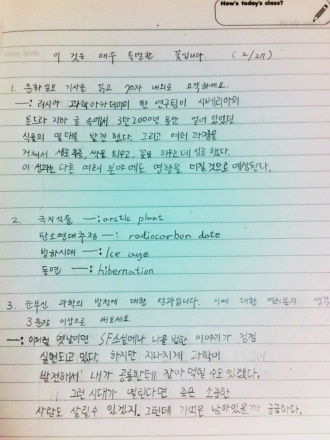 How's today's class?
이 것은 매우 특별한 꽃입니다. (2/27)
1. 문화일보 기사를 읽고 70자 내외로 요약하세요.
→: 러시아 과학아카데미의 한 연구팀이 시베리아의
툰드라 지하 굴 속에서 3만 2000년 동안 얼어 있었던
식물의 열매를 발견했다. 그리고 여러 과정을
거쳐서 세포 증식, 싹을 틔우고, 꽃을 피우는데 성공했다.
이 성과는 다른 여러 분야에도 영향을 미칠 것으로 예상된다.
2. 극지식물 →: arctic plant
탄소연대추정 →: radiocarbon date
빙하시대 →: Ice age
동면 →: hibernation
3. 눈부신 과학의 발전에 대한 성과입니다. 이에 대한 여러분의 생각
3문장 이상으로 써보세요.
→: 이처럼 옛날이면 SF소설에나 나올 법한 이야기가 점점
실현되고 있다. 하지만 지나치게 과학이
발전해서 내가 공룡한테 잡아 먹힐 수도 있겠다.
그런 시대가 열린다면 죽은 소중한
사람도 살릴 수 있겠지. 그런데 기억은 남아있을까 궁금하다.